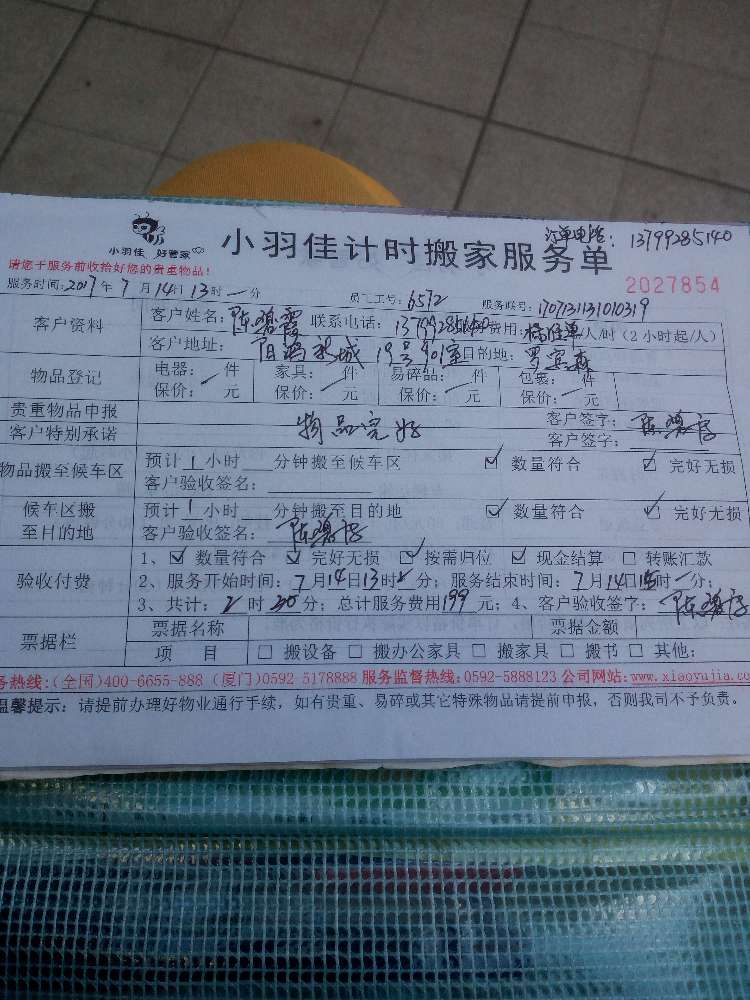 小羽佳 好管家
小羽佳计时搬家服务单
订单电话：13799285140
请您于服务前收拾好您的贵重物品！
2027854
服务时间:2017年7月14日13时一分 员工工号:6572 服务联号:170713113101031９
客户资料 客户姓名: 陈碧霞 联系电话: 费用: 人/时(2小时起/人)
客户地址: 19号901室 目的地: 罗宾森
物品登记 电器: 件 家具: 件 易碎品: 件 包裹: 件
保价: 元 保价: 元 保价: 元 保价: 元
贵重物品申报 物品完好 客户签字: 陈碧霞
客户特别承诺 客户签字:
物品搬至候车区 预计1小时 分钟搬至候车区 ☑ 数量符合 ☑ 完好无损
客户验收签名:
候车区搬至目的地 预计1小时 分钟搬至目的地 ☑ 数量符合 ☑ 完好无损
客户验收签名: 陈碧霞
验收付费 1、☑ 数量符合 ☑ 完好无损 ☑ 按需归位 ☑ 现金结算 □ 转账汇款
2、服务开始时间: 7月14日13时 分; 服务结束时间: 7月14日15时一分;
3、共计: 2时 分; 总计服务费用199元; 4、客户验收签字: 陈碧霞
票据栏 票据名称 票据金额
项 目 □ 搬设备 □ 搬办公家具 □ 搬家具 □ 搬书 □ 其他:
务热线:(全国)400-6655-888 (厦门)0592-5178888 服务监督热线:0592-5888123 公司网站:www.xiaoyujia.co
温馨提示: 请提前办理好物业通行手续, 如有贵重、易碎或其它特殊物品请提前申报, 否则我司不予负责。